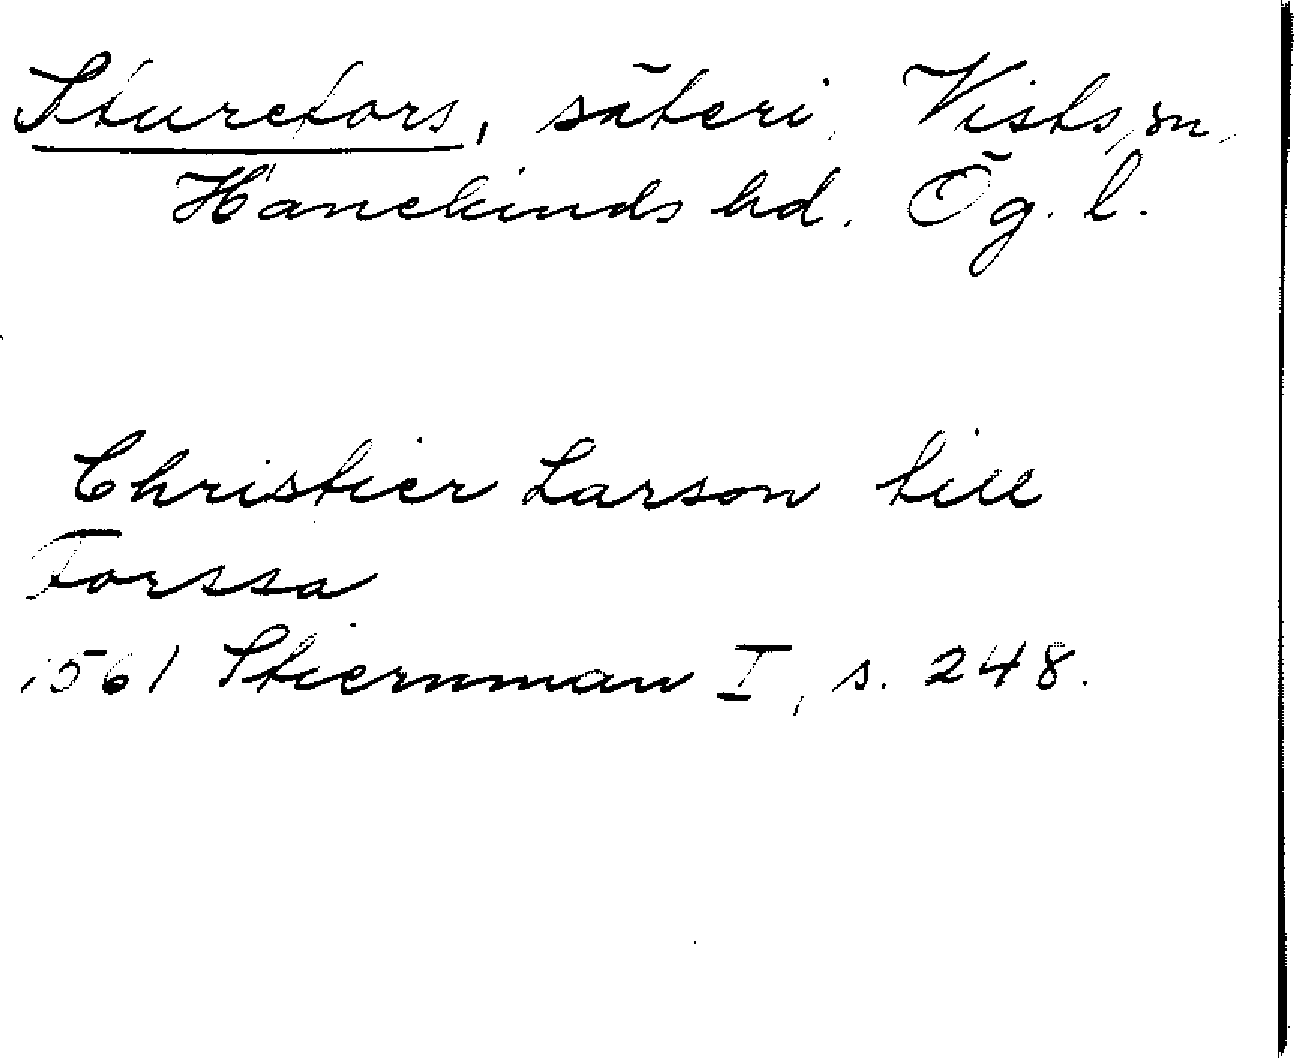 Sturefors, säteri, Vists sn,
Hanekinds hd. Ög. l.
Christier Larson till
Forssa
1561 Stiernman I, s. 248.